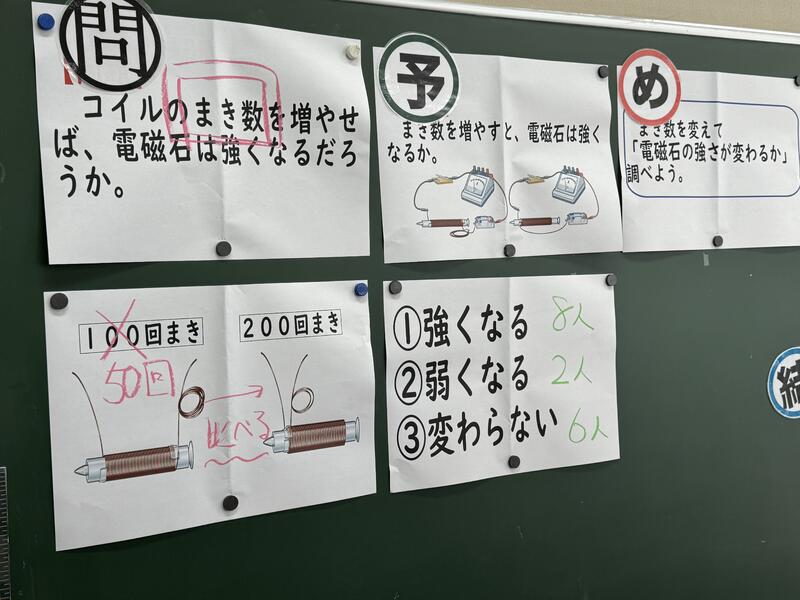 問
コイルのまき数を増やせ
ば、電磁石は強くなるだろ
うか。
予
まき数を増やすと、電磁石は強く
なるか。
め
まき数を変えて
「電磁石の強さが変わるか」
調べよう。
100回まき
50回
200回まき
比べる
①強くなる 8人
②弱くなる 2人
③変わらない 6人
結